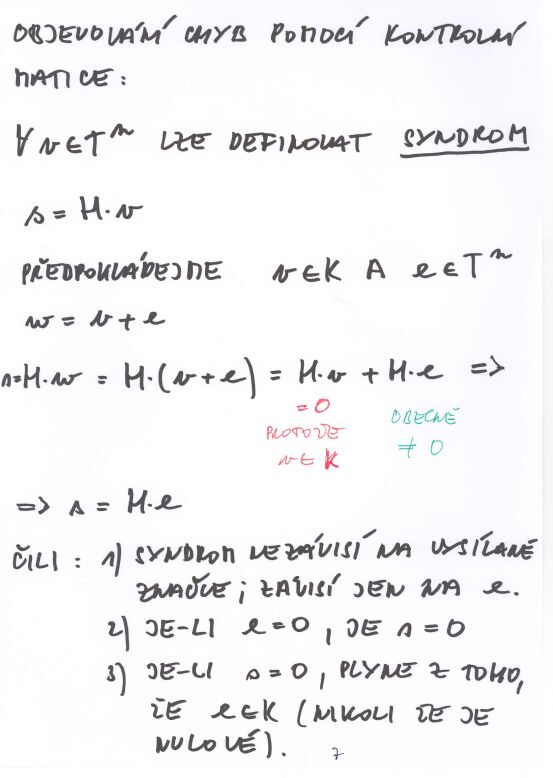 OBJEVOVÁNÍ CHYB POMOCÍ KONTROLNÍ
MATICE:
∀ v ∈ Tⁿ LZE DEFINOVAT SYNDROM
s = H·v
PŘEDPOKLÁDEJME v ∈ K A e ∈ Tⁿ
w = v + e
s = H·w = H·(v + e) = H·v + H·e =>
= 0 OBECNĚ
PROTOŽE ≠ 0
v ∈ K
=> s = H·e
ČILI: 1) SYNDROM NEZÁVISÍ NA VYSÍLANÉ
ZNAČCE; ZÁVISÍ JEN NA e.
2) JE-LI e = 0, JE s = 0
3) JE-LI s = 0, PLYNE Z TOHO,
ŽE e ∈ K (NIKOLI ŽE JE
NULOVÉ).
7